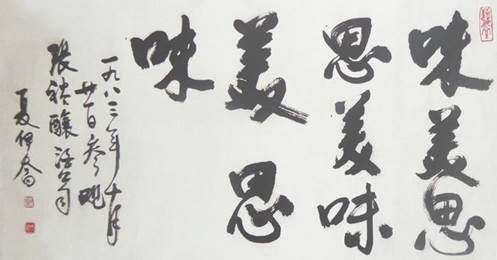 味美思
思美味
美思
味
一九八三年十月
廿一日参观
张裕酿酒公司
夏伊乔